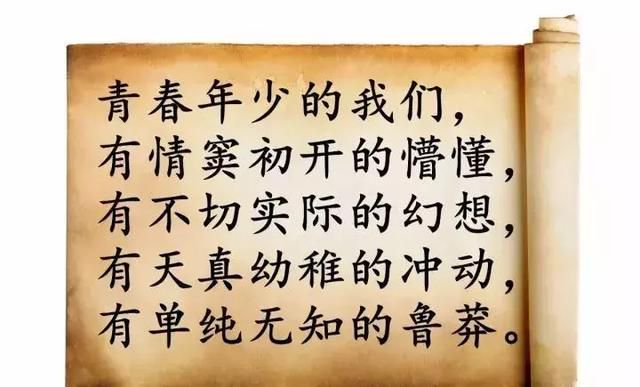 青春年少的我们，
有情窦初开的懵懂，
有不切实际的幻想，
有天真幼稚的冲动，
有单纯无知的鲁莽。